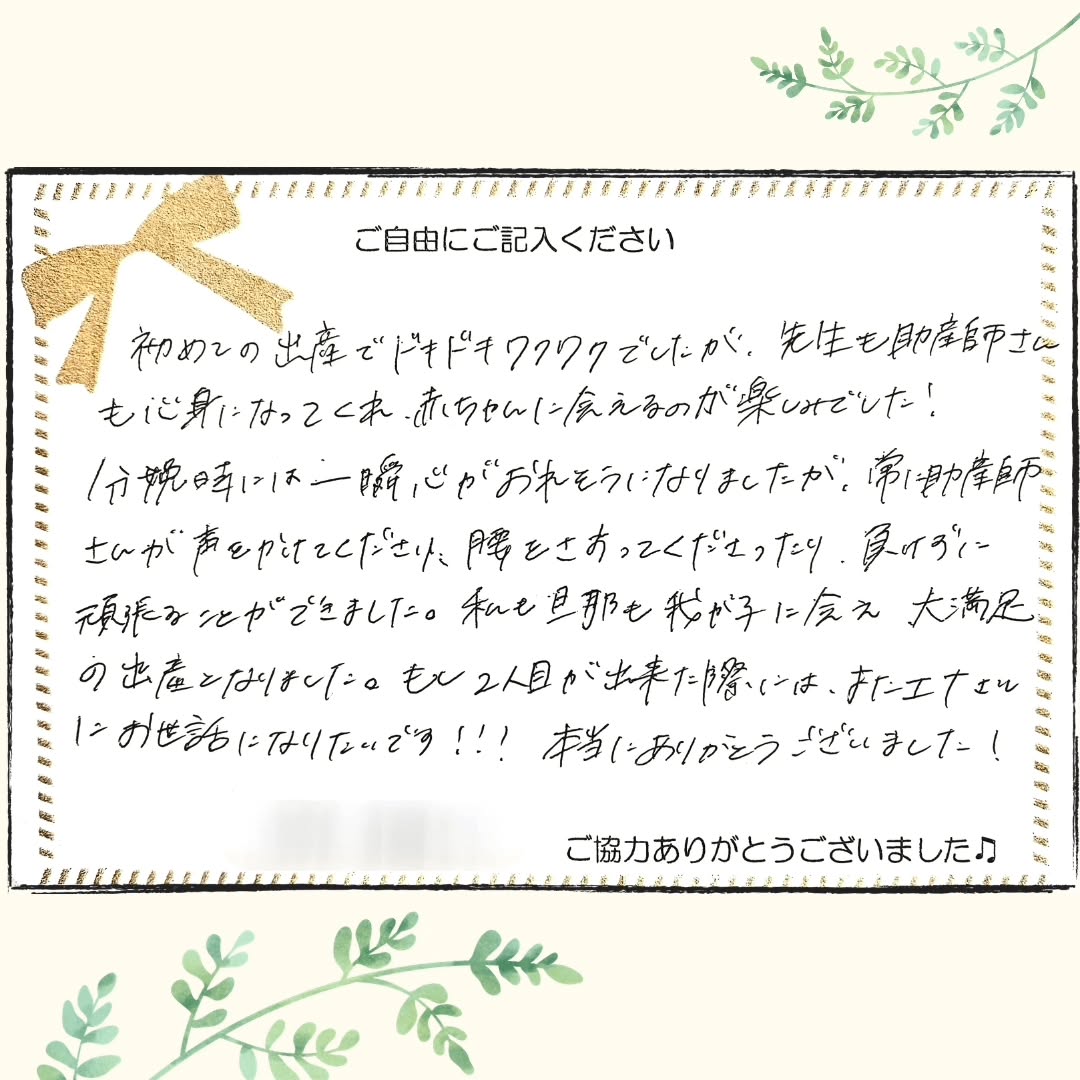 ご自由にご記入ください
初めての出産でドキドキワクワクでしたが、先生も助産師さん
も心身になってくれ、赤ちゃんに会えるのが楽しみでした!
分娩時には一瞬心がおれそうになりましたが、常に助産師
さんが声をかけてくださり、腰をさすってくださったり、負けずに
頑張ることができました。私も旦那も我が子に会え 大満足
の出産となりました。もし2人目が出来た際には、またエナさん
にお世話になりたいです!!! 本当にありがとうございました!
ご協力ありがとうございました♫